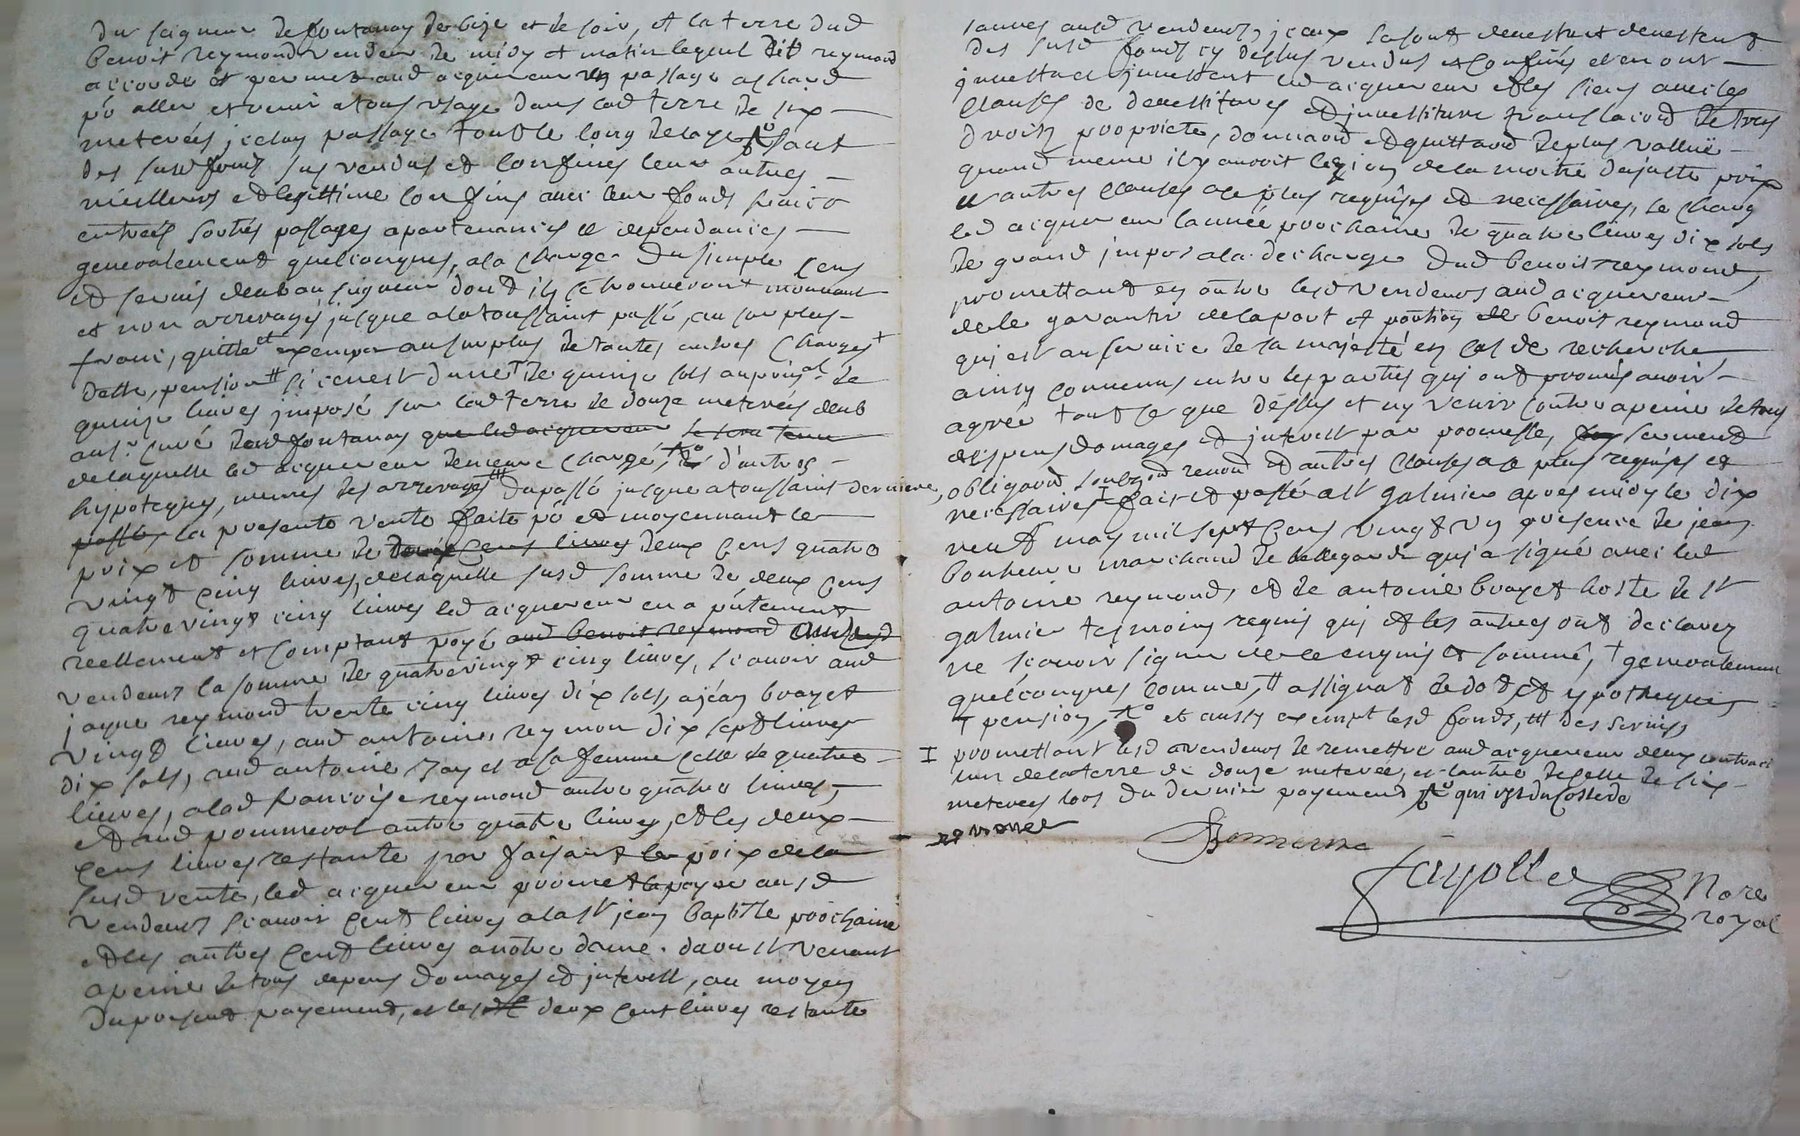 du seigneur de fontanay de bize et de soir, et la terre dud
benoit reymond vendeur de midy et matin lequel dit reymond
accorde et permet aud acquereur un passage a chard
po aller et venir a tous usage dans lad terre de six
meterées jceluy passage tout le long de laye
des susd fonds sus vendus et confinés leur autres
meilleurs et legittime confins avec leur fonds
entrées sorties passages apartenances et dependances
generalement quelconques, a la charge du simple cens
et servis deub au seigneur dont ils se trouveront mouvant
et non arreragés jusque a la toussaint passé, au surplus
franc, quitte et exempt au surplus de toutes autres charges
dette, pension si ce nest dune de quinze sols au prinal de
quinze livres jmposé sur lad terre de douze meterées deub
au sr curé dud fontanay que led acquereur se sera tenu
de laquelle led acquereur demeure chargé, d'autres
hypoteques, mesmes des arrerages du passé jusque a toussaint derniere,
passé, la presente vente faite po et moyennant le
prix et somme de cens livres deux cens quatre
vingt cinq livres, de laquelle susd somme de deux cens
quatre vingt cinq livres led acquereur en a pntement
reellement et comptant payé aud benoit reymond ausd
vendeurs la somme de quatre vingt cinq livres, scavoir aud
jaque reymond trente cinq livres dix sols, a jean brayet
vingt livres, aud antoine reymon dix sept livres
dix sols, aud antoine et a sa femme celle de quatre
livres, a lad francoise reymond autre quatre livres,
et aud pommerol autre quatre livres, et les deux
cens livres restante pour faisant le prix de la
susd vente, led acquereur promet la payer ausd
vendeurs scavoir cent livres a la st jean baptiste prochaine
et les autres cent livres a notre dame daoust venant
a peine de tous depens domages et jnterest, au moyen
du present payement, et les deux cent livres restante
sauves ausd vendeurs, jceux se sont devestus et devestent
des susd fonds cy dessus vendus et confinés et en ont
jnvestu et jnvestent led acquereur et les siens avec les
clauses de devestitures et jnvestiture translacion de tous
droits proprieté, donnand et quittand de plus vallue
quand meme il y auroit lezion de la moitié du juste prix
et autres clauses a ce plus requises et necessaires, se charge
led acquereur lannée prochaine de quatre livres dix sols
de grand jmpos a la decharge dud benoit reymond,
promettant en outre lesd vendeurs aud acquereur
de le garantir de la part et portion de benoit reymond
qui est au service de sa majesté en cas de recherche,
ainsy convenus entre les parties qui ont promis avoir
agreé tout ce que dessus et ny venir contre a peine de tous
despens domages et jnterest par promesse, serment
obligaon soub.on renon et autres clauses a ce plus requises et
necessaires fait et passé a st galmier apres midy le dix
neuf may mil sept cens vingt un presence de jean
bonheure marchand de bellegarde qui a signé avec led
antoine reymond, et de antoine brayet hoste de st
galmier tesmoins requis qui et les autres ont declarez
ne scavoir signer de ce enquis et sommé, + generalement
quelconques comme, # assignat de dot et ypotheques
T pension, et aussy exempt lesd fonds, ### des servis
I promettant lesd vendeurs de remettre aud acquereur deux contract
lun de la terre de douze meterée, et lautre de celle de six
meterées lors du dernier payement qui est du costé de
reymond
Bonneure
Fayolle Nore
royal